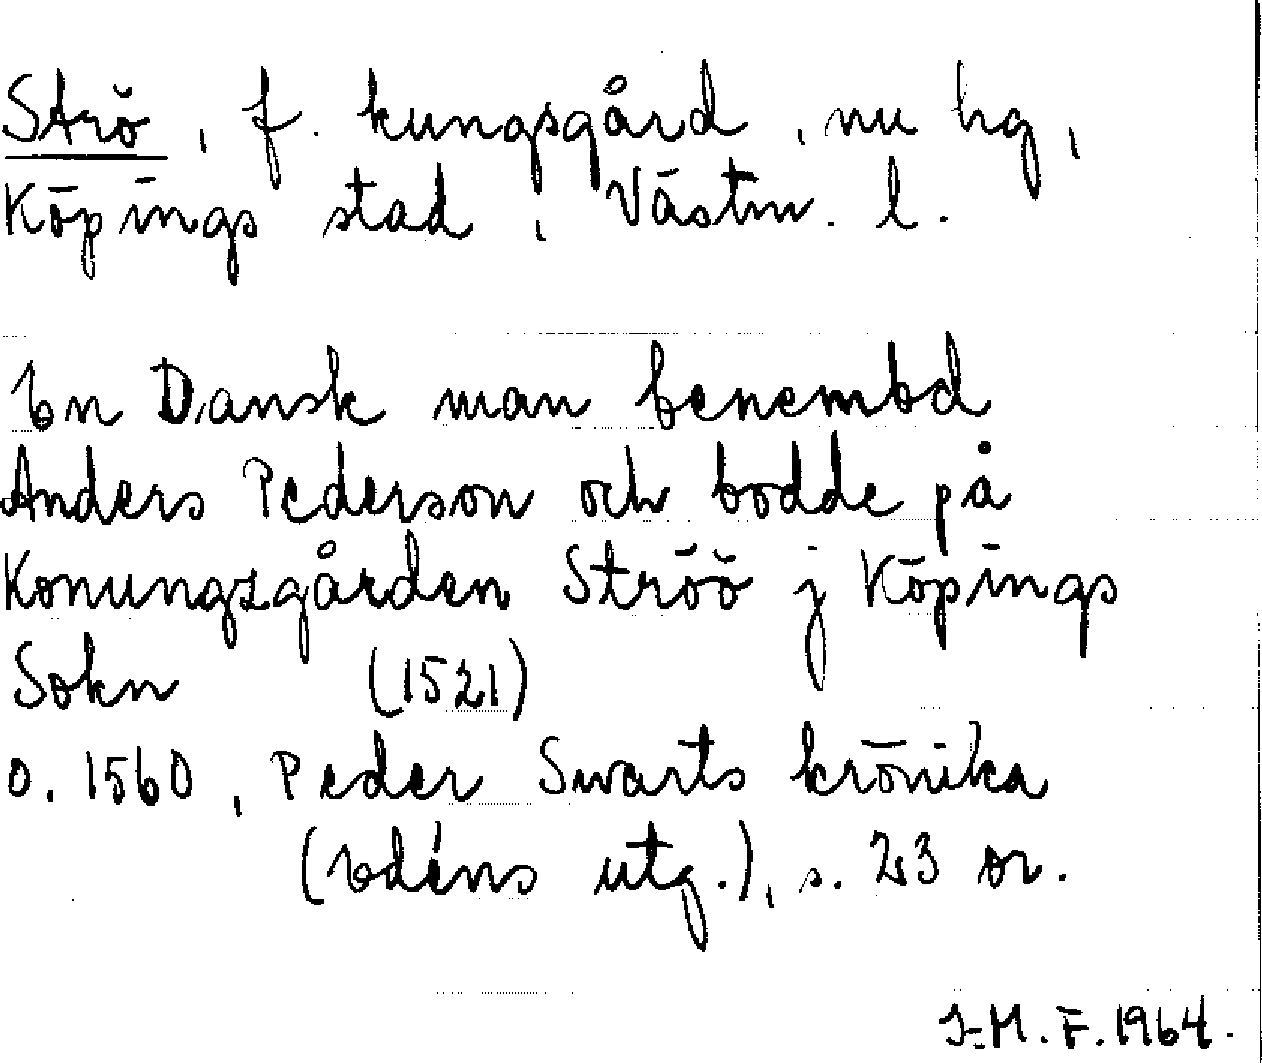 Strö, f. kungsgård, nu hg,
Köpings stad, Västm. l.
En Dansk man benembd
Anders Pederson och bodde på
Konungsgården Ströö j Köpings
Sokn (1521)
o. 1560, Peder Swarts krönika
(Edéns utg.), s. 23 or.
I-M. F. 1964.